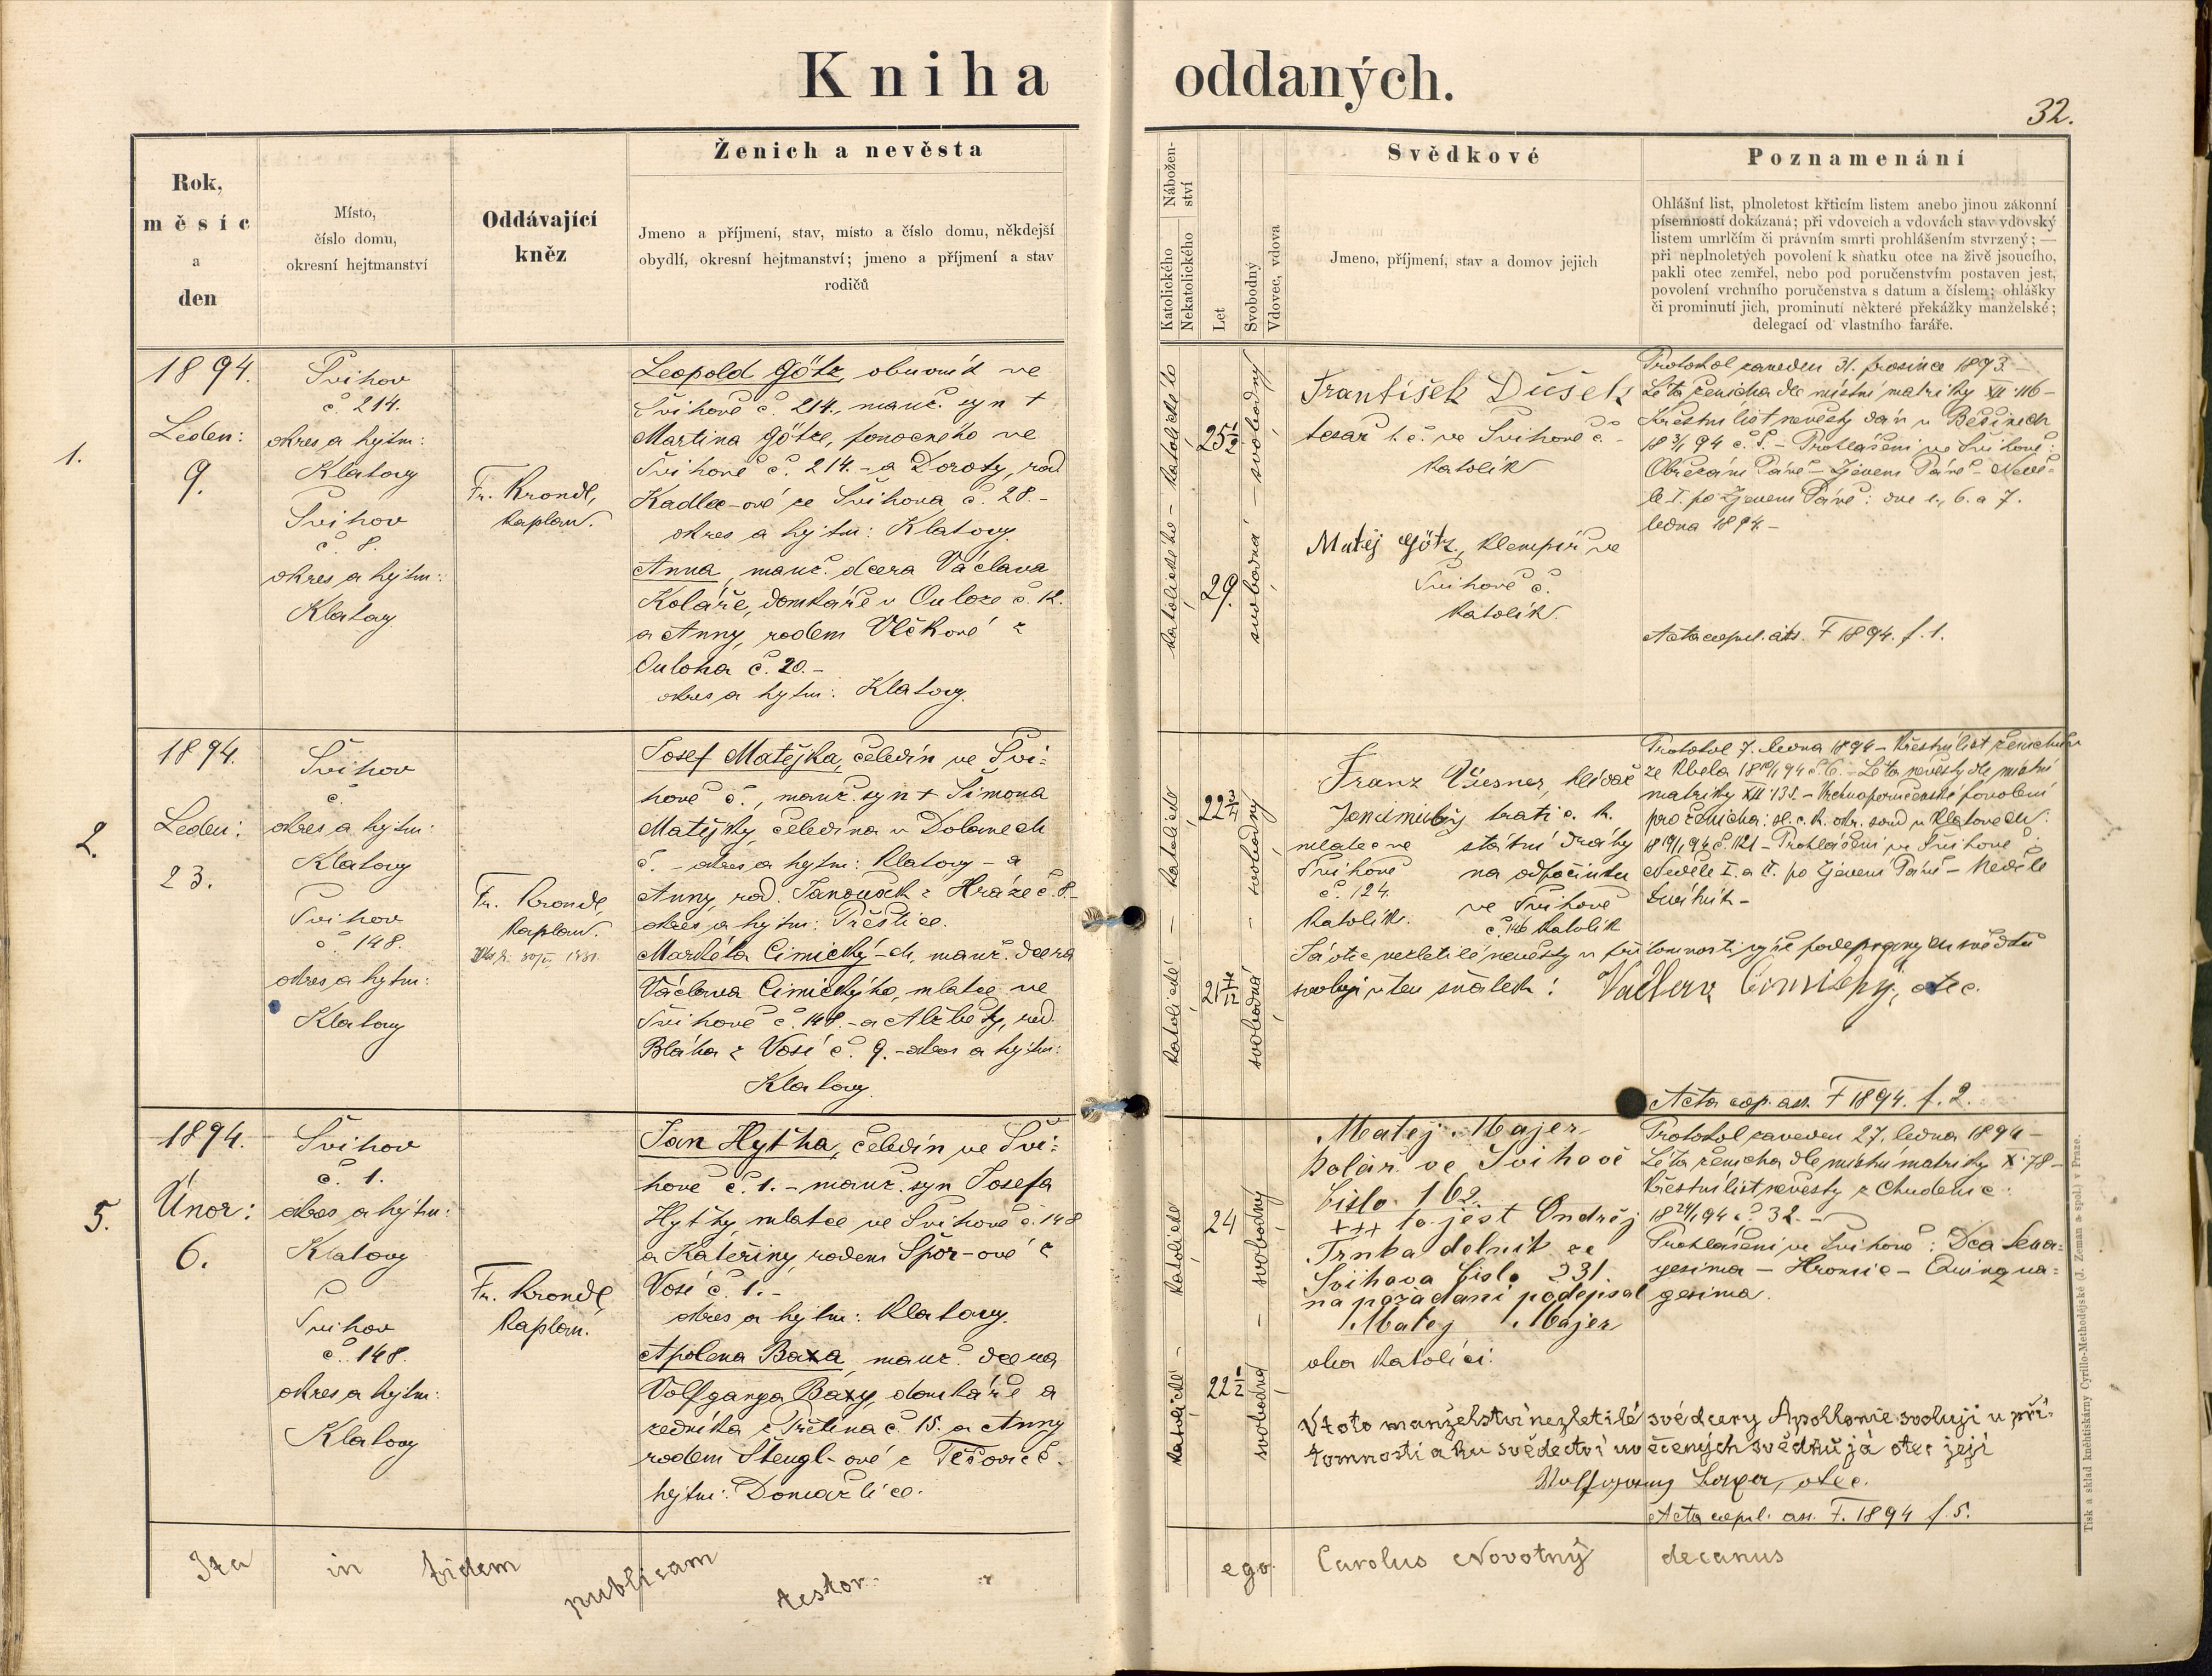 Kniha oddaných.
32.
Rok,
měsíc
a
den
Místo,
číslo domu,
okresní hejtmanství
Oddávající
kněz
Ženich a nevěsta
Jmeno a příjmení, stav, místo a číslo domu, někdejší
obydlí, okresní hejtmanství; jmeno a příjmení a stav
rodičů
Nábožen-
ství
Katolického
Nekatolického
Let
Svobodný
Vdovec, vdova
Svědkové
Jmeno, příjmení, stav a domov jejich
Poznamenání
Ohlášní list, plnoletost křticím listem anebo jinou zákonní
písemností dokázaná; při vdovcích a vdovách stav vdovský
listem umrlčím či právním smrti prohlášením stvrzený; —
při neplnoletých povolení k sňatku otce na živě jsoucího,
pakli otec zemřel, nebo pod poručenstvím postaven jest,
povolení vrchního poručenstva s datum a číslem; ohlášky
či prominutí jich, prominutí některé překážky manželské;
delegací od vlastního faráře.
1.
1894.
Leden:
9.
Švihov
č. 214.
okres a hejtm:
Klatovy
Švihov
č. 8.
okres a hejtm:
Klatovy
Fr. Krondl,
kaplan.
Leopold Götz, obuvník ve
Švihově č. 214., manž. syn +
Martina Götze, ponocného ve
Švihově č. 214. - a Doroty, rod
Kadlec-ové ze Švihova č. 28. -
okres a hejtm: Klatovy.
Anna, manž. dcera Václava
Koláře, domkáře v Ouloze č. 12.
a Anny, rodem Vlčkové z
Ouloha č. 20. -
okres a hejtm: Klatovy.
katolického - katolického
25 1/2
29.
svobodná - svobodný
František Dušek
tesař t. č. ve Švihově č. -
katolík
Matěj Götz, klempíř ve
Švihově č.
katolík.
Protokol zaveden 31. prosince 1893 -
Léta ženicha dle místní matriky XII. 116 -
Křestní list nevěsty dán v Běšinech
18 3/1 94 č. 5. - Prohlášení ve Švihově:
Obřezání Páně - Zjevení Páně - Nedě-
le I. po Zjevení Páně: dne 1., 6. a 7.
ledna 1894. -
Acta copul. F 1894. f. 1.
2.
1894.
Leden:
23.
Švihov
č.
okres a hejtm:
Klatovy
Švihov
č. 148.
okres a hejtm:
Klatovy
Fr. Krondl,
kaplan.
Josef Matějka, čeledín ve Švi-
hově č., manž. syn + Šimona
Matějky, čeledína v Dolanech
č. - okres a hejtm: Klatovy - a
Anny, rod. Janouch z Hráze č. 8. -
okres a hejtm: Přeštice.
Markéta Cimický-ch, manž. dcera
Václava Cimického, mlatce ve
Švihově č. 148. - a Alžběty, rod.
Bláha z Vosí č. 9. - okres a hejtm:
Klatovy.
katolické - katolické
22 3/4
svobodná - svobodný
Franz
mlatec ve
Švihově
č. 124
katolík.
státní dráhy
na odpočinku
ve Švihově
č. 146 katolík
Já otec nezletilé nevěsty v přítomnosti výše podepsaných svědků
svoluji v ten sňatek: Václav Cimický, otec.
Protokol 7. ledna 1894 - Křestní list ženichův
- Léta nevěsty dle místní
matriky XII. 138. - Vrchnoporučenské povolení
pro ženicha: sl. c. k. okr. soud v Klatovech:
- Prohlášení ve Švihově:
Neděle I. a II. po Zjevení Páně - Neděle
Devítník -
Acta cop. ass. F 1894. f. 2.
5.
1894.
Únor:
6.
Švihov
č. 1.
okres a hejtm:
Klatovy
Švihov
č. 148.
okres a hejtm:
Klatovy
Fr. Krondl,
kaplan.
Jan Hytha, čeledín ve Švi-
hově č. 1. - manž. syn Josefa
Hythy, mlatce ve Švihově č. 148
a Kateřiny, rodem Špor-ové z
Vosí č. 1. -
okres a hejtm: Klatovy.
Apolena Baxa, manž. dcera
Volfganga Baxy, domkáře a
zedníka z Tretína č. 15. a Anny
rodem Štengl-ové z Těšovic č.
hejtm: Domažlice.
katolické - katolické
24
22 1/2
svobodná - svobodný
Matej Majer
kolář ve Svihově
Čislo 162.
+++ to jest Ondrěj
Trnka dělnik ze
Svihova čislo 231.
na požadani podepsal
Matej Majer
oba katolíci.
V toto manželství nezletilé své dcery Apollonie svoluji u pří-
tomnosti a ku svědectví uvěčených svědků já otec její
Wolfgang Baxa, otec.
Protokol zaveden 27. ledna 1894 -
Léta ženicha dle místní matriky X. 78 -
Křestní list nevěsty z Chudenic:
18 24/1 94 č. 32. -
Prohlášení ve Švihově: Dca Sexa-
gesima - Hromnic - Quinqua-
gesima.
Acta copul. ass. F. 1894 f. 5.
Ita in fidem publicam testor: ego Carolus Novotný decanus
Tisk a sklad knihtiskárny Cyrillo-Methodějské (J. Zeman a spol.) v Praze.